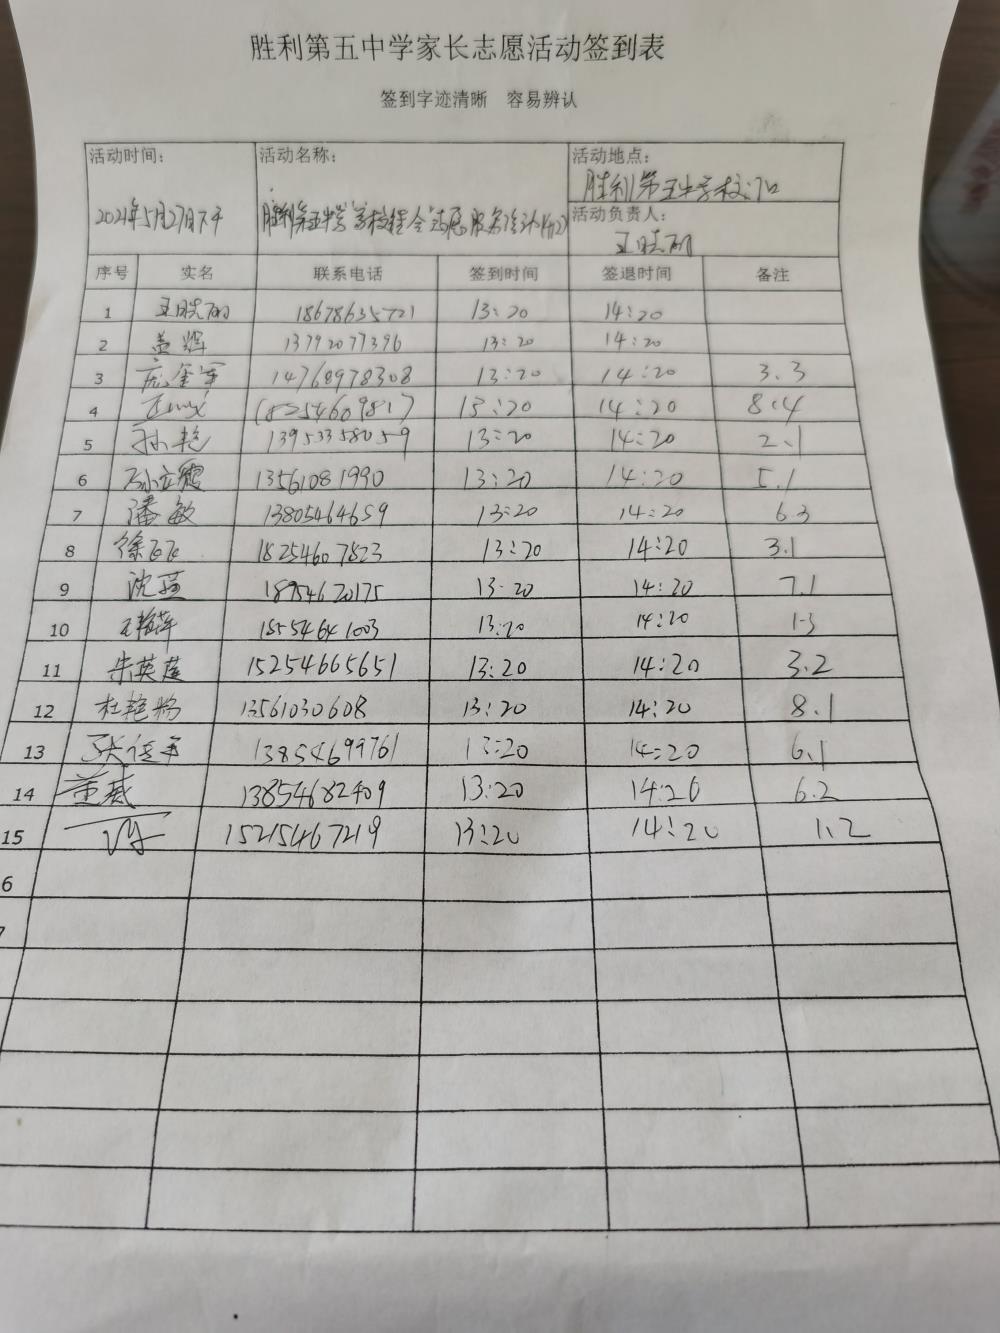 胜利第五中学家长志愿活动签到表
签到字迹清晰 容易辨认
活动时间： 活动名称： 活动地点：
胜利第五中学校门口
2021年5月27日下午 胜利第五中学 志愿服务活动
活动负责人：
王晓丽
序号 实名 联系电话 签到时间 签退时间 备注
1 王晓丽 18678635721 13:20 14:20
2 盖辉 13792077396 13:20 14:20
3 庞金军 14768978308 13:20 14:20 3.3
4 18254609817 13:20 14:20 8.4
5 孙艳 13953358059 13:20 14:20 2.1
6 孙立霞 13561081990 13:20 14:20 5.1
7 潘敏 13805464659 13:20 14:20 6.3
8 徐飞飞 18254607823 13:20 14:20 3.1
9 沈燕 18954620175 13:20 14:20 7.1
10 王艳萍 15554641003 13:20 14:20 1.3
11 朱英莲 15254665651 13:20 14:20 3.2
12 杜艳 13561030608 13:20 14:20 8.1
13 张军 13854699761 13:20 14:20 6.1
14 董燕 13854682409 13:20 14:20 6.2
15 15215467219 13:20 14:20 1.2
6
7